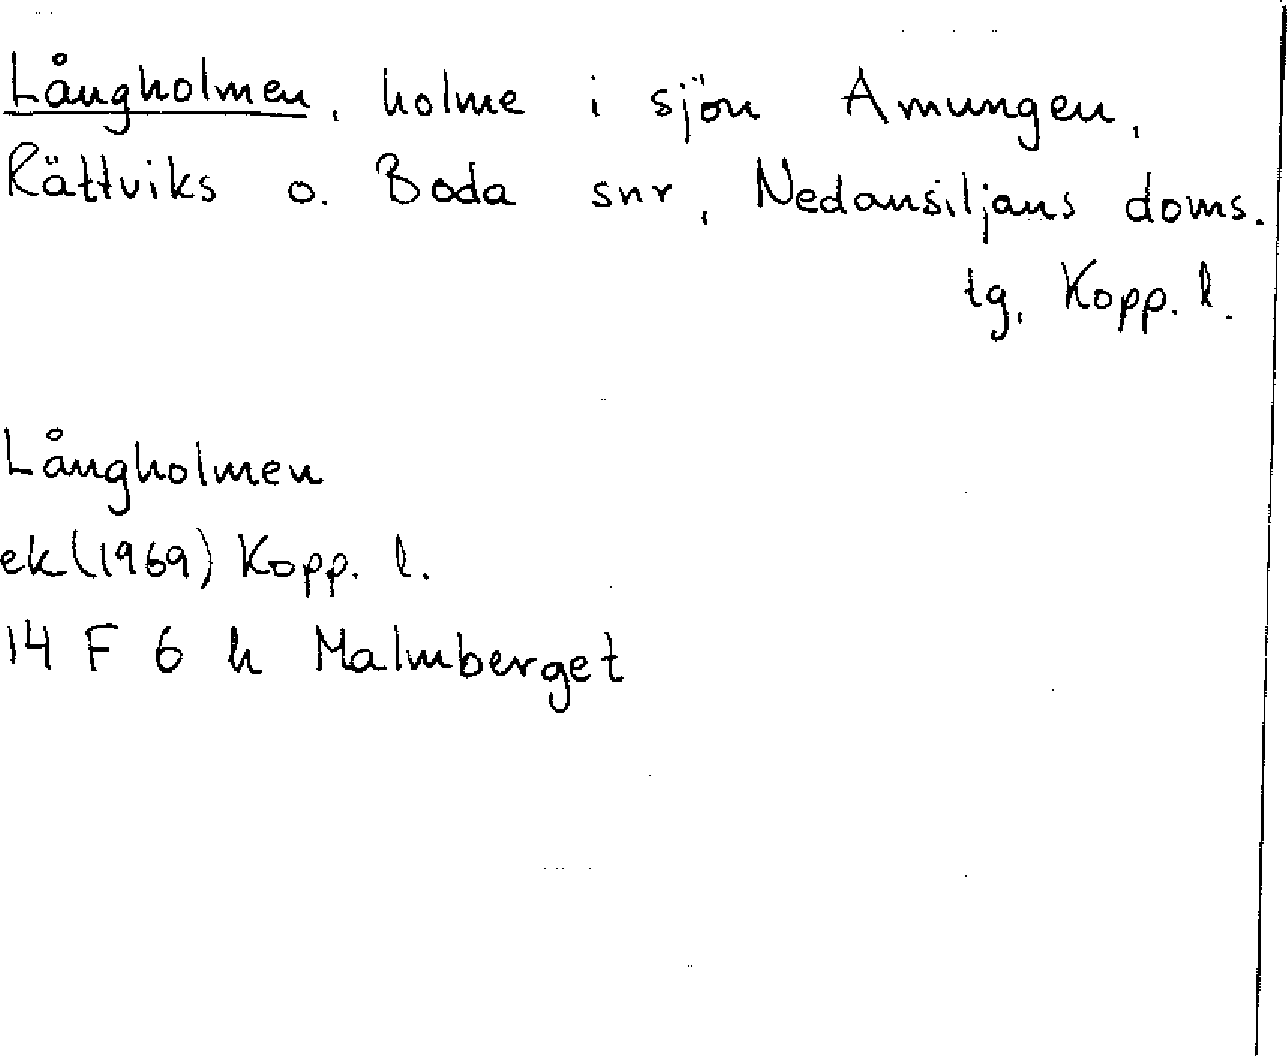 Långholmen, holme i sjön Amungen,
Rättviks o. Boda snr, Nedansiljans doms.
tg, Kopp. l.
Långholmen
ek (1969) Kopp. l.
14 F 6 h Malmberget